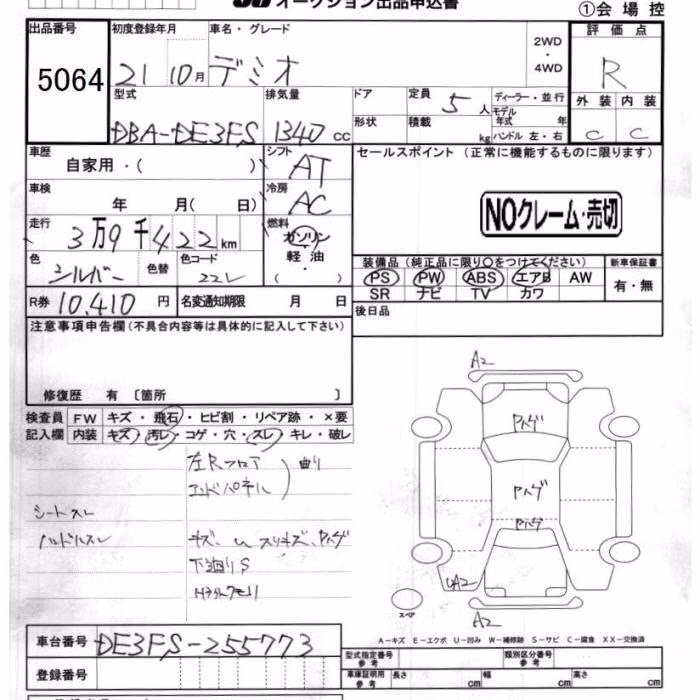 オークション出品申込書 ①会場控
出品番号 初度登録年月 車名・グレード 2WD・4WD 評価点
5064 21 10月 デミオ R
型式 排気量 ドア 定員 5人 ディーラー・並行 外装 内装
DBA-DE3FS 1340cc 形状 積載 kg モデル年式 年 ハンドル 左・右 C C
車歴 シフト AT セールスポイント (正常に機能するものに限ります)
自家用・( )
車検 冷房 AC
年 月( 日) NOクレーム・売切
走行 燃料
3万9千422km ガソリン
色 色替 色コード 軽油 装備品(純正品に限り○をつけてください) 新車保証書
シルバー 22V ( ) PS PW ABS エアB AW 有・無
SR ナビ TV カワ
R券 10,410円 名変通知期限 月 日 後日品
注意事項申告欄(不具合内容等は具体的に記入して下さい)
修復歴 有 〔箇所 〕
検査員 FW キズ・飛石・ヒビ割・リペア跡・×要
記入欄 内装 キズ・汚レ・コゲ・穴・スレ・キレ・破レ
左Rフロア
エンドパネル 曲り
シートスレ
ハンドルスレ キズ、U、スリキズ、Pハゲ
下廻りS
A2
Pハゲ
Pハゲ
Pハゲ
UA2
スペア
A2
A-キズ E-エクボ U-凹み W-補修跡 S-サビ C-腐食 XX-交換済
車台番号 DE3FS-255773
型式指定番号 参考 類別区分番号 参考
登録番号 車庫証明用 参考 長さ cm 幅 cm 高さ cm